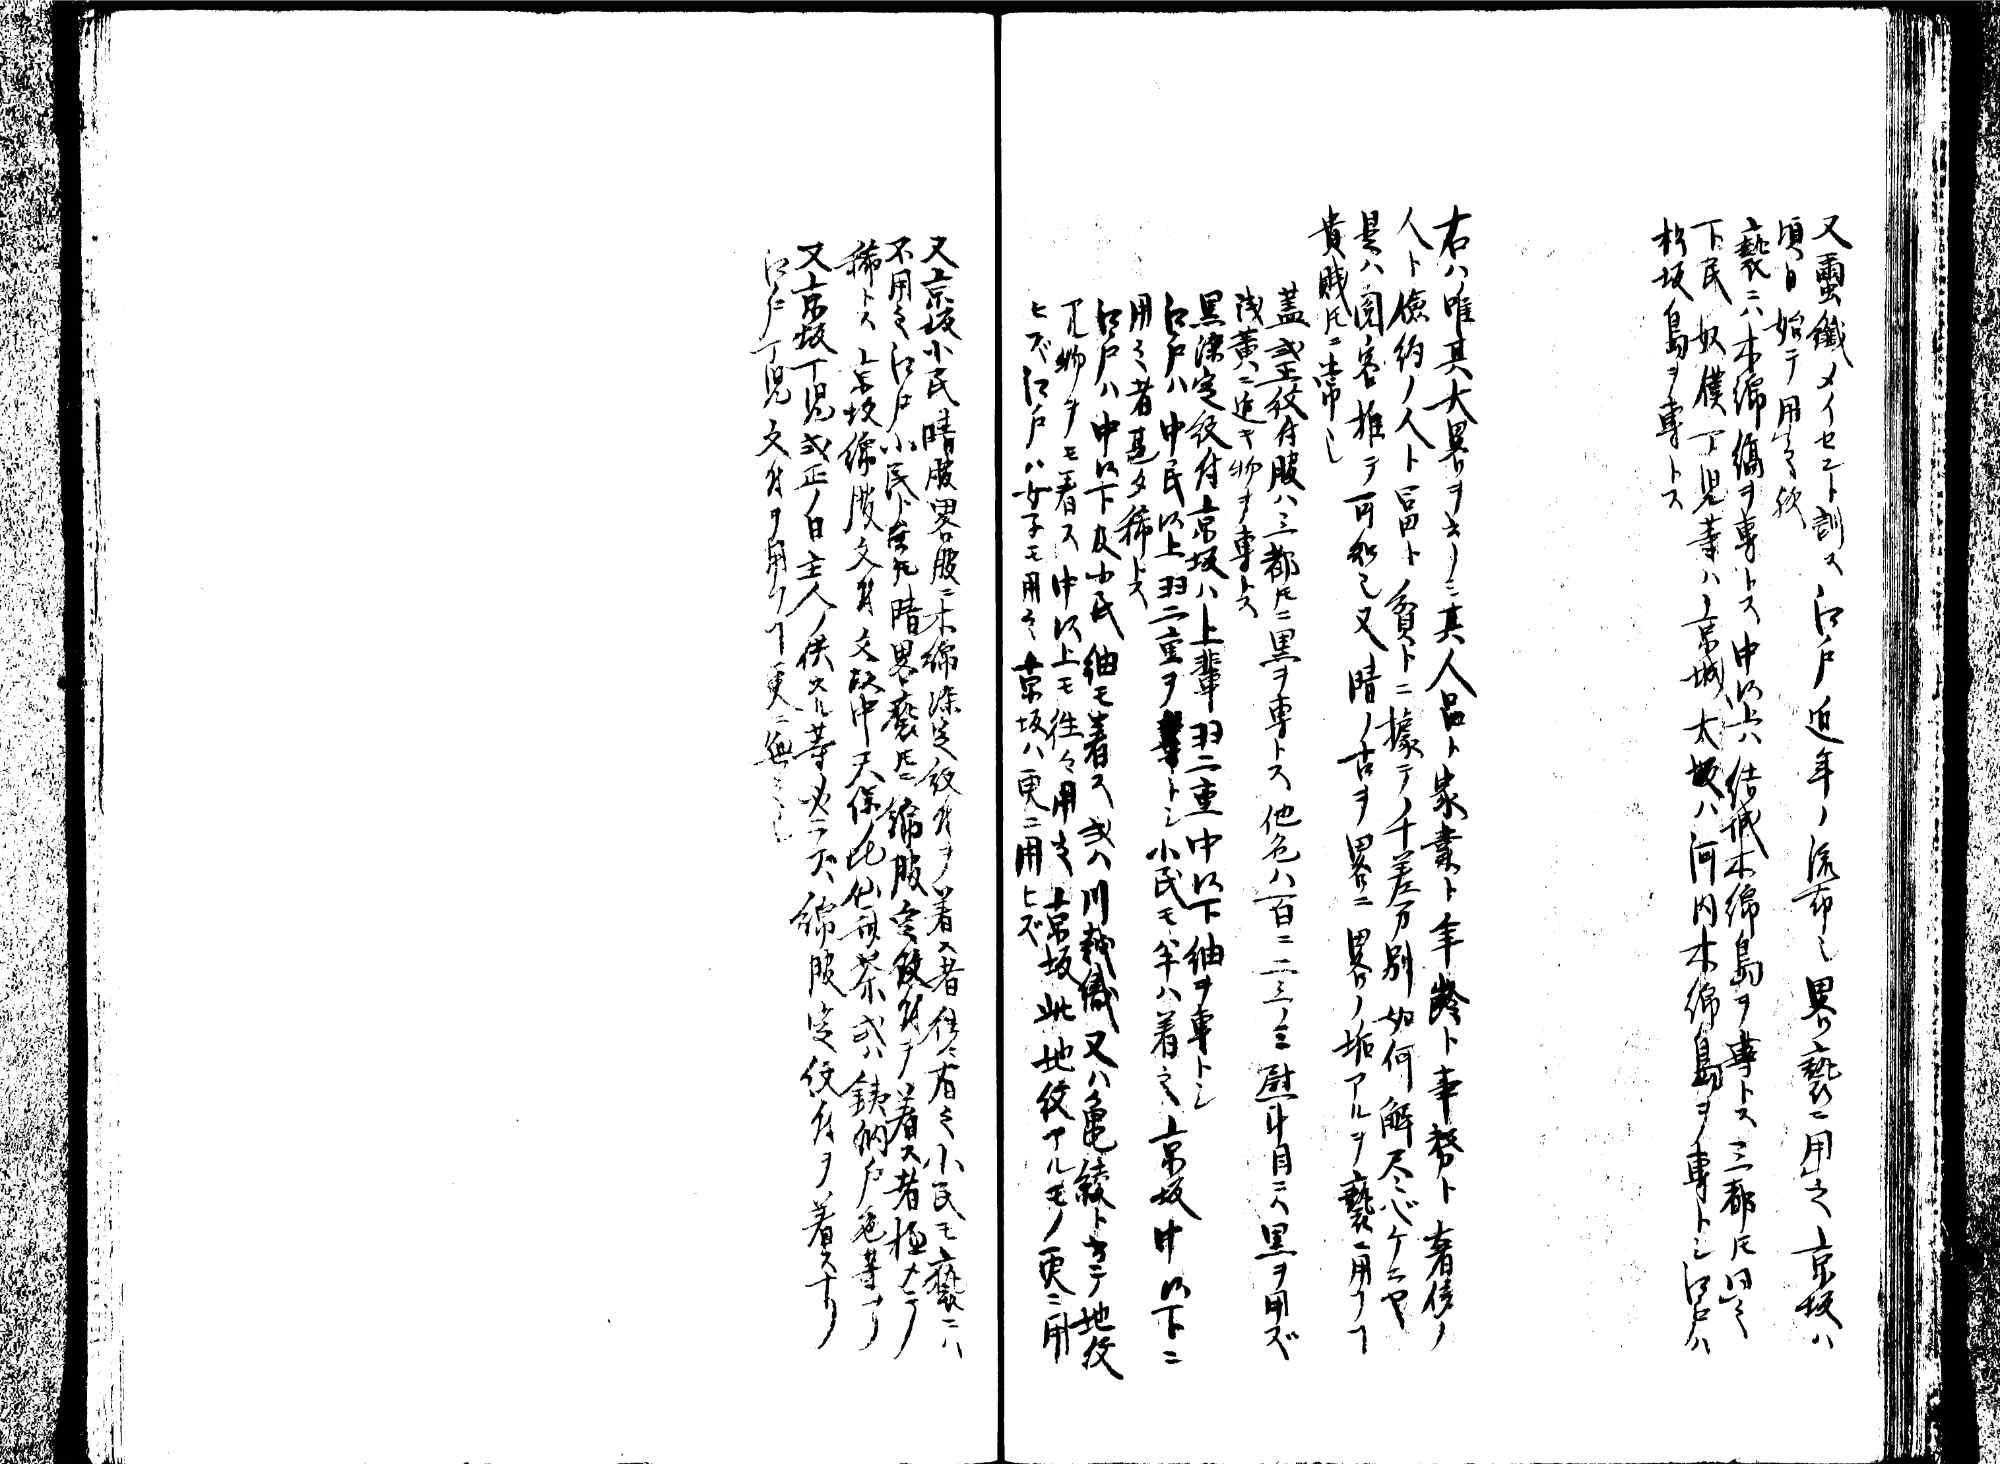 又蠒織メイセント訓ス江戸近年ノ流布シ畧ト褻ニ用之京坂ハ
頃日始テ用之欤
褻ニハ木綿縞ヲ専トス中以上ハ結城木綿島ヲ専トス三都トモ同之
下民奴僕丁児等ハ京城大坂ハ河内木綿島ヲ専トシ江戸ハ
松坂島ヲ専トス
右ハ唯其大畧ヲ云ノミ其人品ト家業ト年齢ト事務ト奢侈ノ
人ト儉約ノ人ト富ト貧トニ據テノ千差万別如何解尽シ
是ハ閲客推テ可知シ又晴ノ古ヲ畧ニ畧ノ垢アルヲ褻ニ用フヿ
貴賎トモニ常也
蓋或正紋付服ハ三都トモニ黒ヲ専トス他色ハ百ニ二三ノミ慰斗目ニハ黒ヲ用ズ
浅黄ニ近キ物ヲ専トス
黒染定紋付京坂ハ上輩羽二重中以下紬ヲ専トシ
江戸ハ中民以上羽二重ヲ専トシ小民モ半ハ着之京坂中以下ニ
用之者甚タ稀トス
江戸ハ中以下及小民紬モ着ス或ハ川越織又ハ亀綾ト云テ地紋
アル物ヲモ着ス中以上モ往々用之京坂此地紋アルモノ更ニ用
ヒズ江戸ハ女子モ用之京坂ハ更ニ用ヒズ
又京坂小民晴服畧服ニ木綿染定紋付ヲ着ス者往々有之小民モ褻ニハ
不用之江戸小民ト雖トモ晴畧褻トモニ綿服定紋付ヲ着ス者極メテ
稀トス京坂綿服文付文政中天保ノ比仙斎茶或ハ銕納戸色等アリ
又京坂丁児或正ノ日主人ノ供スル等必ラズ綿服定紋付ヲ着スナリ
江戸丁児文付ヲ用フヿ更ニ無之也